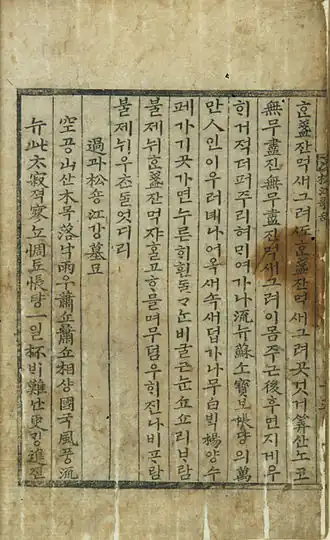 ᄒᆞᆫ盞잔먹새그려ᄯᅩᄒᆞᆫ盞잔먹새그려곳것거算산노코
無무盡진無무盡진먹새그려이몸주근後후면지게우
ᄒᆡ거적더퍼주리혀ᄆᆡ여가나流뉴蘇소寶보帳댱의萬
만人인이우러녜나어옥새속새덥가나무白ᄇᆡᆨ楊양수
페가기곳가면누른ᄒᆡ흰ᄃᆞᆯᄀᆞᄂᆞᆫ비굴근눈쇼쇼리ᄇᆞ람
불제뉘ᄒᆞᆫ盞잔먹쟈ᄒᆞᆯ고ᄒᆞ믈며무덤우ᄒᆡ진나비ᄑᆞ람
불제뉘우ᄎᆞᆫᄃᆞᆯ엇디리
過과松숑江강墓묘
空공山산木목落낙雨우蕭쇼蕭쇼相샹國국風풍流
뉴此ᄎᆞ寂젹寥뇨惆됴悵턍一일杯ᄇᆡ難난更ᄀᆡᆼ進진